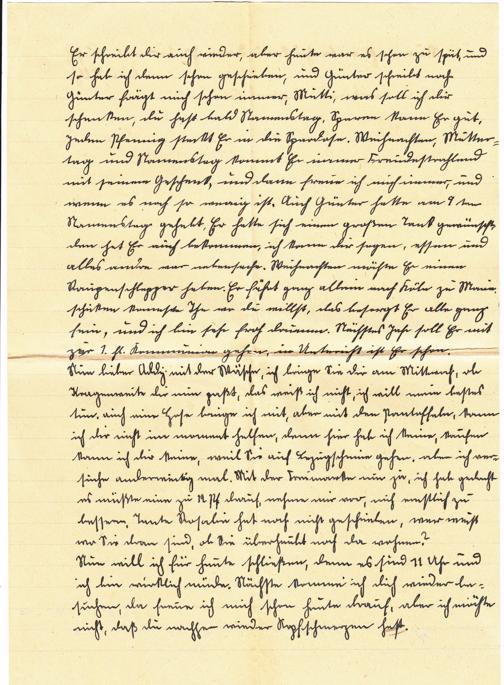 Er schreibt dir auch wieder, aber heute war es schon zu spät, und
so hat ich denn schon geschrieben, und Günter schreibt noch
Günter frägt mich schon immer, Mutti, was soll ich dir
schenken, du hast bald Namenstag. Sparen kann Er gut,
jeden Pfennig steckt Er in die Spardose. Weihnachten, Mutter-
tag und Namenstag kommt Er immer Freudestrahlend
mit seinem Geschenk, und dann freue ich mich immer, und
wenn es noch so wenig ist. Auch Günter hatte am 9 ten
Namenstag gehabt, Er hatte sich einen großen Tank gewünscht,
den hat Er auch bekommen, ich kann dir sagen, essen und
alles andre war nebensache. Weihnachten möchte Er einen
Raupenschlepper haben. Er fährt ganz allein nach Köln zu
schicken kannste Ihn wo du willst, das besorgt Er alles ganz
fein, und ich bin sehr froh drum. Nächstes Jahr soll Er mit
zur 1. hl. Kommunion gehen, im Unterricht ist Er schon.
Nun lieber Addi mit der Wäsche, ich bringe Sie dir am Mittwoch, ob
Margarete die nun paßt, das weiß ich nicht, ich will mein bestes
tun, auch eine Hose bringe ich mit, aber mit den Pantoffeln, kann
ich dir nicht im moment helfen, denn hier hab ich keine, kaufen
kann ich dir keine, weil Sie auf Bezugschein gehen, aber ich ver-
suche anderweitig mal. Mit der Freimarke nun ja, ich hab gedacht
es müßte eine zu 12 Pf drauf, nehme mir vor, mich restlich zu
bessern, Tante Rosalie hat noch nicht geschrieben, wer weiß
wo Sie dran sind, ob Sie überhaubt noch da wohnen?
Nun will ich für heute schließen, denn es sind 11 Uhr und
ich bin wirklich müde. Nächste komme ich dich wieder be-
suchen, da freue ich mich schon heute drauf, aber ich möchte
nicht, daß du nachher wieder Kopfschmerzen hast.